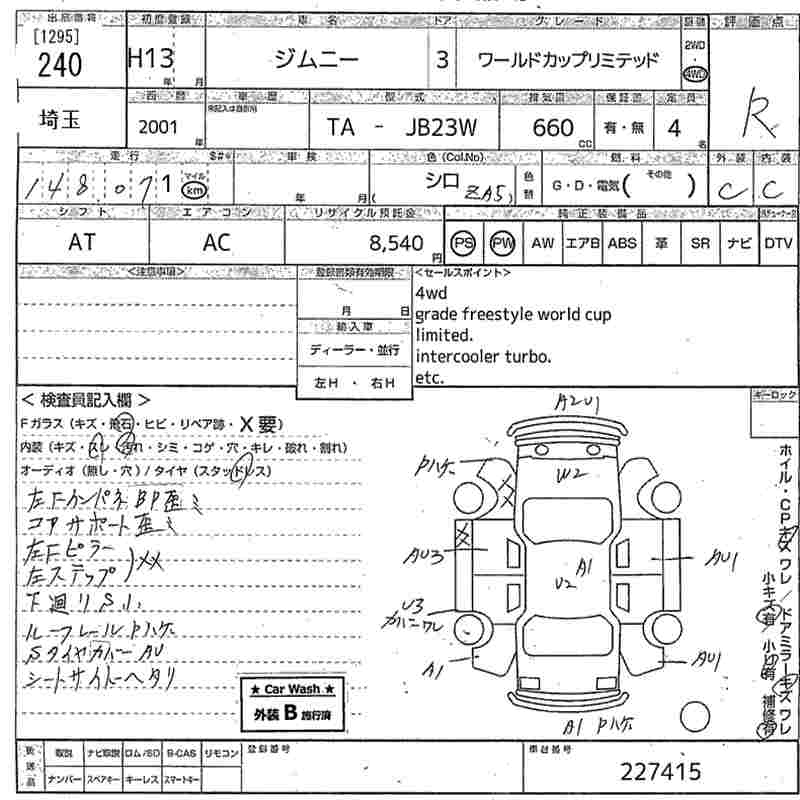 出品番号 初度登録 車名 ドア グレード 駆動 評価点
[1295]
240 H13 年 月 ジムニー 3 ワールドカップリミテッド 2WD ・ 4WD R
埼玉 西暦 車歴 型式 排気量 保証書 定員
2001 年 TA - JB23W 660 CC 有・無 4 名
走行 車検 色(Col.No) 燃料 外装 内装
148,071 マイル km 年 月 シロ (ZA5) 色替 G・D・電気( その他 ) C C
シフト エアコン リサイクル預託金 純正装備品
AT AC 8,540 円 PS PW AW エアB ABS 革 SR ナビ DTV
<注意事項> 登録書類有効期限 <セールスポイント>
月 日 4wd
grade freestyle world cup
輸入車 limited.
ディーラー・並行 intercooler turbo.
左H ・ 右H etc.
< 検査員記入欄 > キーロック
Fガラス(キズ・飛石・ヒビ・リペア跡・X要)
内装(キズ・スレ・汚れ・シミ・コゲ・穴・キレ・破れ・割れ)
オーディオ(無し・穴)/タイヤ(スタッドレス)
左Fインパネ BP歪ミ
コアサポート歪ミ
左Fピラー
左ステップ XX
下廻りS小
ルーフレールPハゲ
Sタイヤカバー AU
シートサイドヘタリ
A2U1
Pハゲ
W2
XX
XX
AU3
A1
U2
AU1
U3
カバーワレ
A1
AU1
A1 Pハゲ
ホイル・CPキズワレ/ドアミラーキズワレ
小キズ有/小凹有 補修有
★ Car Wash ★
外装 B 施行済
取説 ナビ取説 ロム/SD B-CAS リモコン 登録番号 車台番号
ナンバー スペアキー キーレス スマートキー 227415